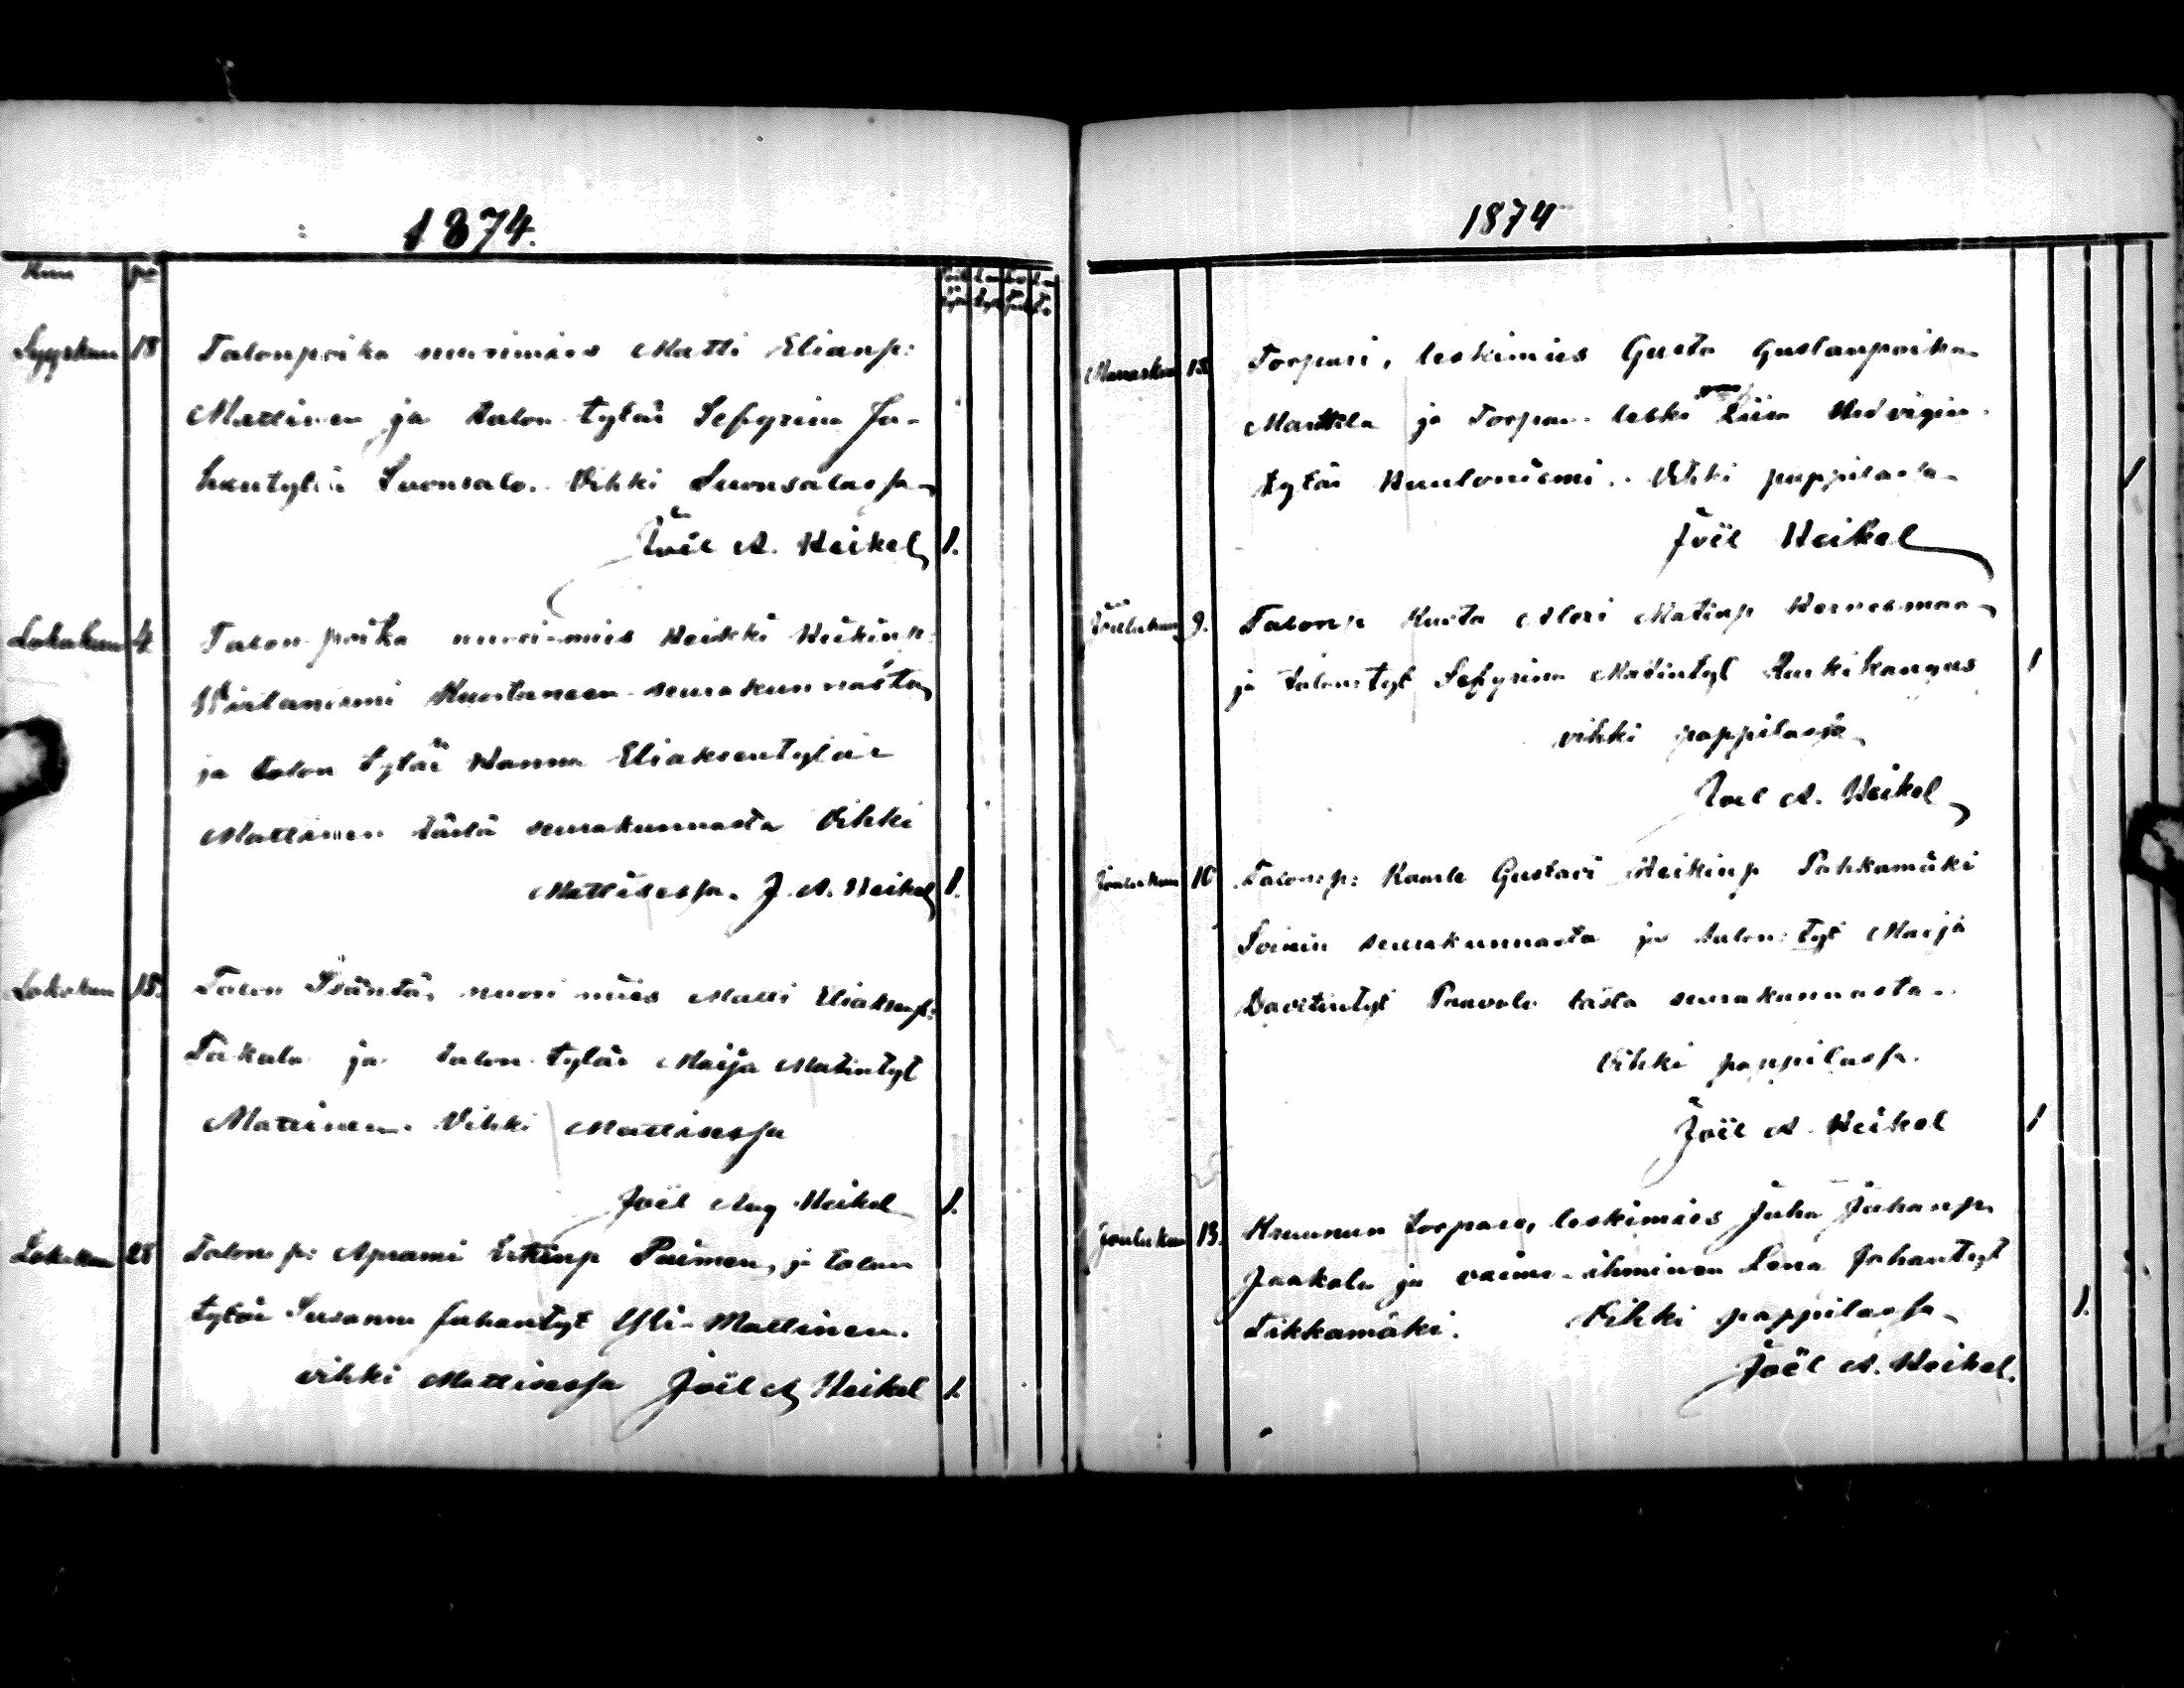 1874.
Kuu pä
Syyskuu 18 Talonpoika nuorimies Matti Elianp:
Mattinen ja talon tytär Sefyrina Ju-
hantytär Suonsalo. Vihki Suonsalossa
Joël A. Heikel 1.
Lokakuu 4 Talon poika nuori-mies Heikki Heikinp:
Kuortaneen seurakunnasta
ja talon tytär Hanna Eliaksentytär
Mattinen tästä seurakunnasta Vihki
Mattisessa. J. A. Heikel 1.
Lokakuu 15. Talon Isäntä, nuori mies Matti Eliaksenp:
Takala ja talon tytär Maija Matintyt
Mattinen. Vihki Mattisessa
Joël Aug Heikel 1.
Lokakuu 28 Talon p: Aprami Erkinp Paimen, ja talon
tytär Susanna Juhantyt Yli-Mattinen.
vihki Mattisessa Joël A Heikel 1.
1874
Marraskuu 13. Torpari, leskimies Gusta Gustanpoika
Marttila ja Torpan leski Liisa Hedvigin
tytär Kuuloniemi. Vihki pappilassa 1
Joël Heikel
Joulukuu 9. Talonp Kusta Aleksi Matinp
ja talon tyt Sefyrina Matintyt Kurkikangas 1
vihki pappilassa
Joel A. Heikel
Joulukuu 10 Talon p: Kaarle Gustavi Heikinp Pahkamäki
Soinin seurakunnasta ja talon: tyt Maija
Davetintyt Paavola tästa seurakunnasta.
Vihki pappilassa.
Joël A. Heikel 1
Joulukuu 13. Kruunun torpari, leskimies Juha Juhanp.
Jaakola ja vaimo-ihminen Lena Johantyt
Tikkamäki. Vihki pappilassa 1.
Joël A. Heikel.